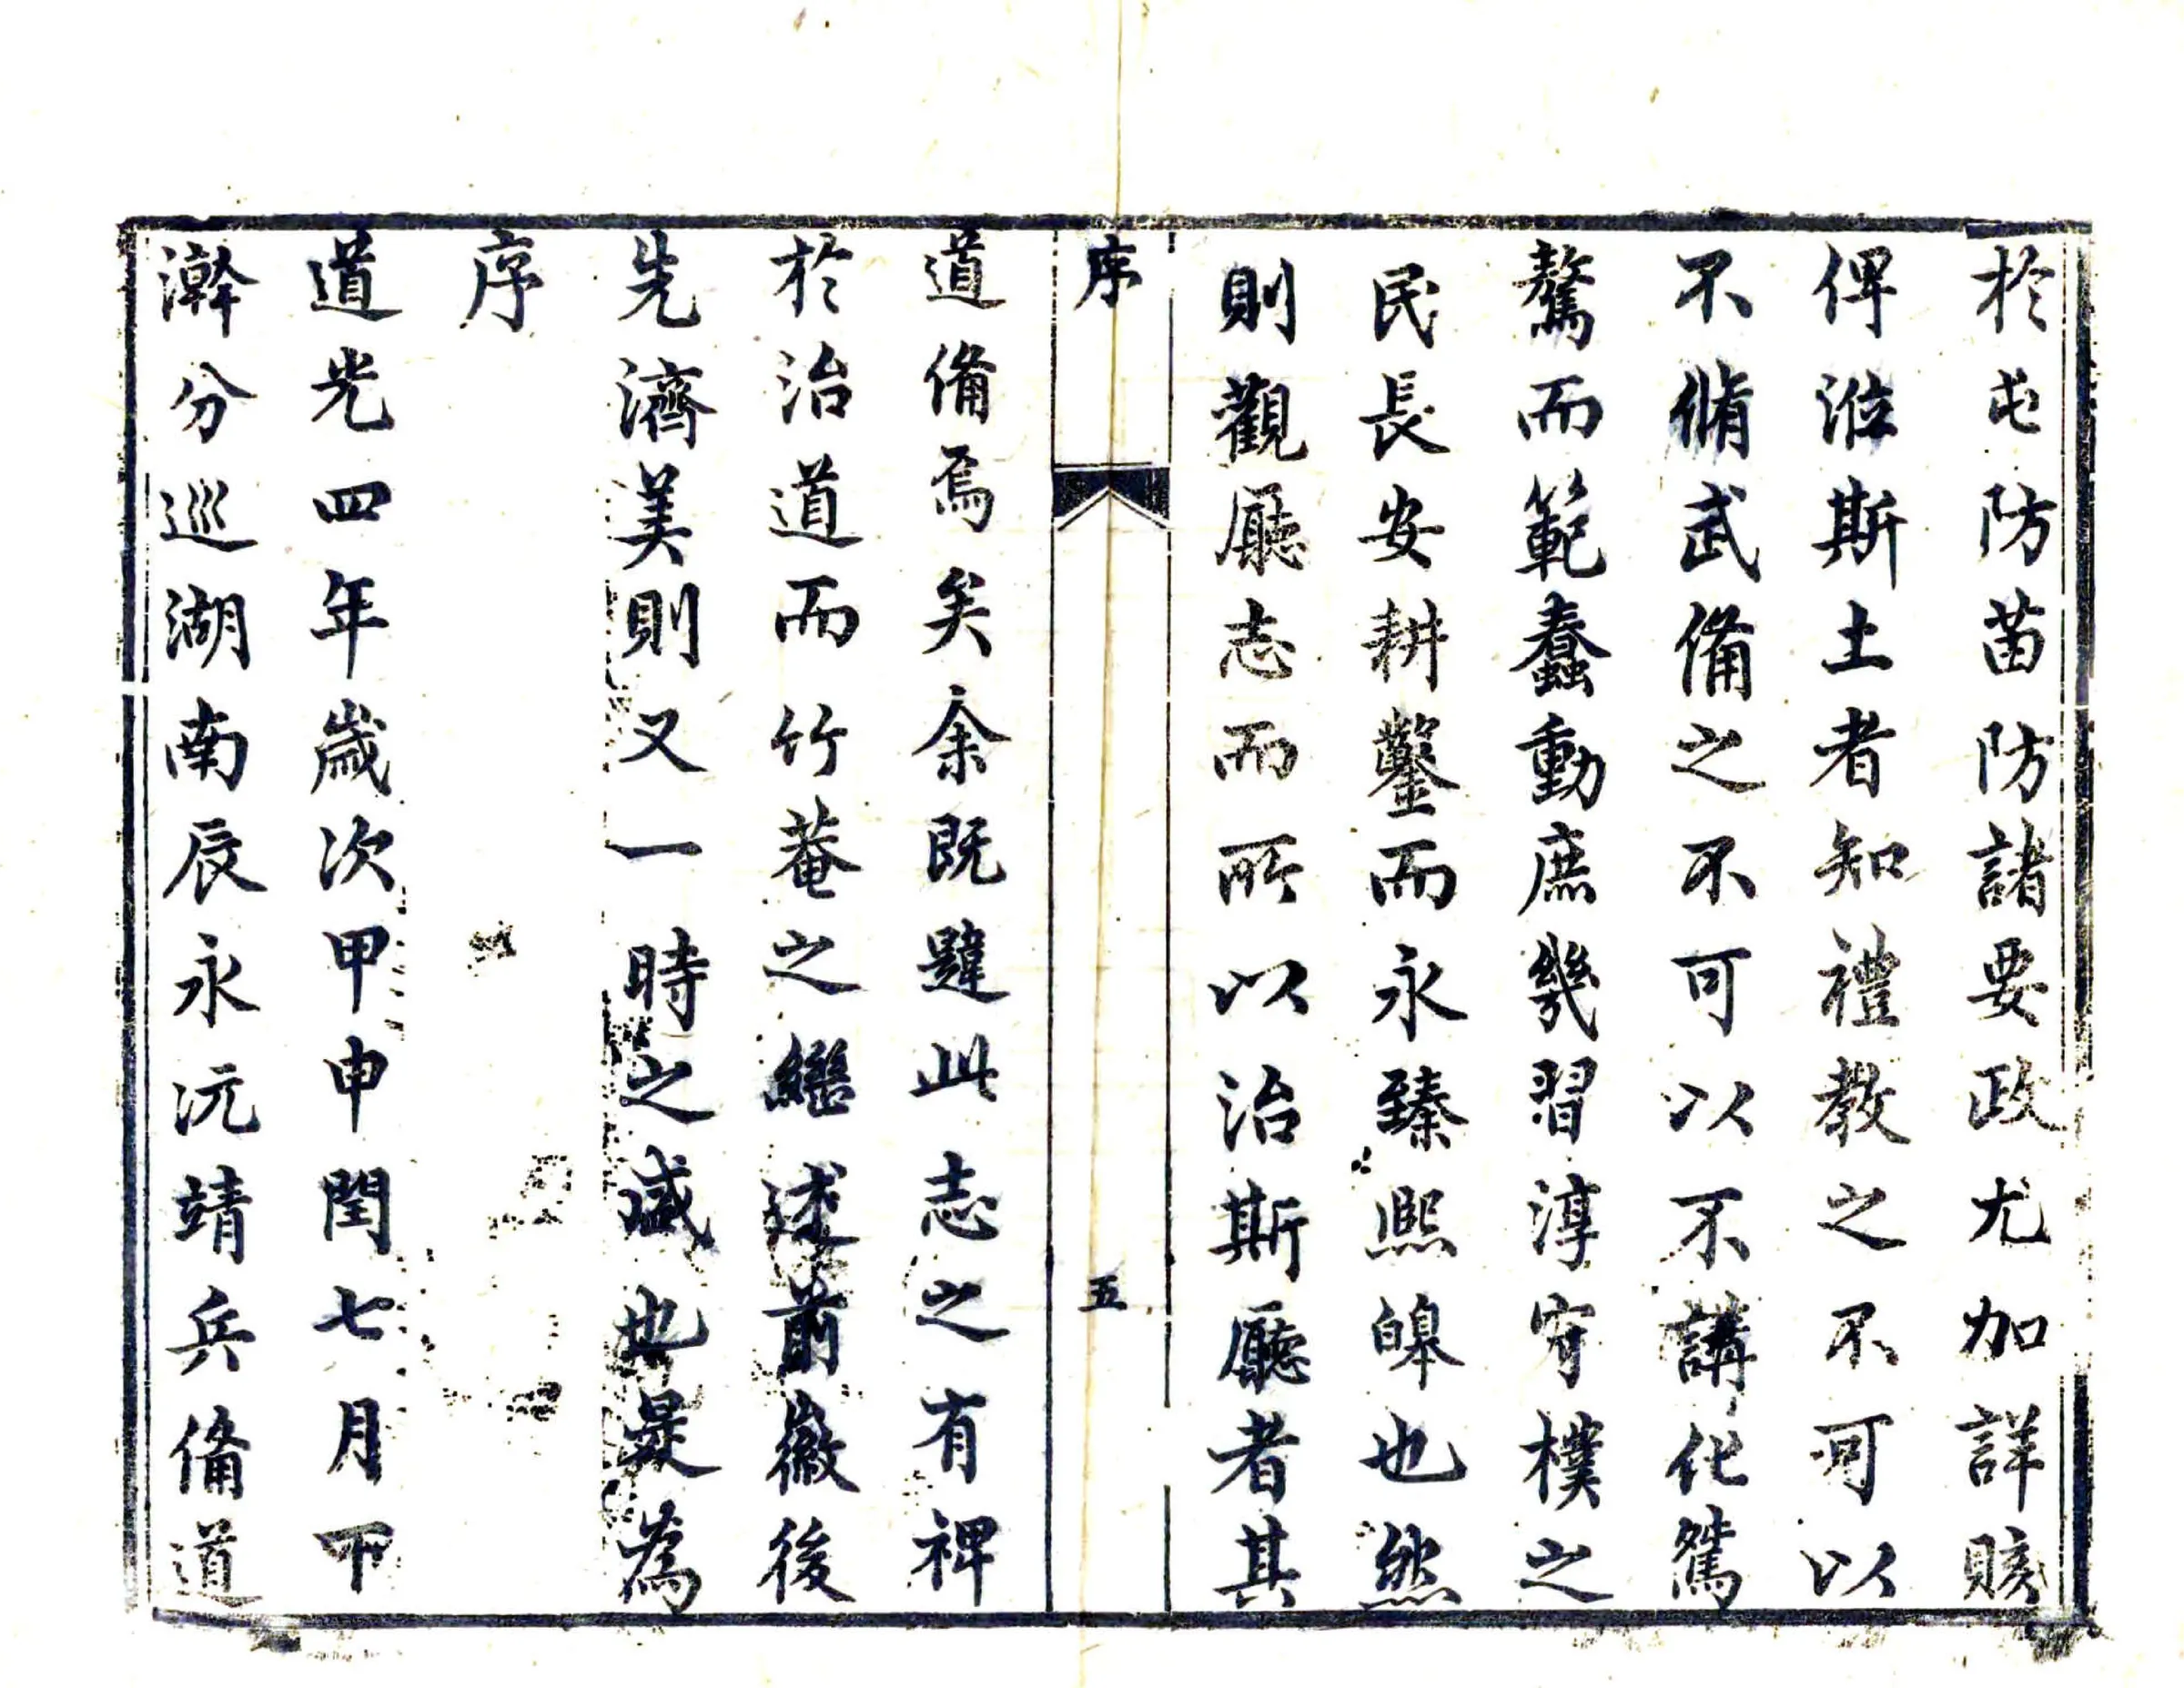 於屯防苗防諸要政尤加詳賅
俾涖斯土者知禮教之不可以
不脩武備之不可以不講化駑
驁而範蠢動庶幾習淳守樸之
民長安耕鑿而永臻熙皞也然
則觀廳志而所以治斯廳者其
序
五
道備焉矣余既韙此志之有裨
於治道而竹菴之繼述前徽後
先濟美則又一時之盛也是為
序
道光四年歲次甲申閏七月下
澣分巡湖南辰永沅靖兵備道